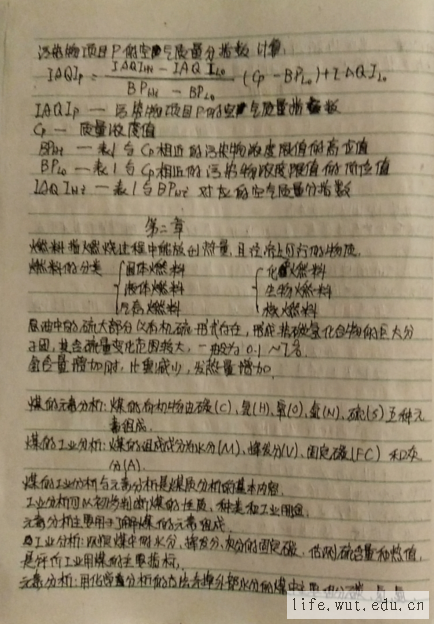 污染物项目P的空气质量分指数计算:
IAQIp = (IAQIHi − IAQILo) / (BPHi − BPLo) (Cp − BPLo) + IAQILo
IAQIp — 污染物项目P的空气质量指数
Cp — 质量浓度值
BPHi — 表1与Cp相近的污染物浓度限值的高位值
BPLo — 表1与Cp相近的污染物浓度限值的低位值
IAQIHi — 表1与BPHi对应的空气质量分指数
第二章
燃料指燃烧过程中能放出热量,且经济上可行的物质.
燃料的分类 固体燃料 化燃料
液体燃料 生物燃料
气态燃料 核燃料
原油中的硫大部分以有机硫形式存在,形成非碳氢化合物的巨大分
子团,其含硫量变化范围较大,一般为0.1~7%.
氢含量增加时,比重减少,发热量增加.
煤的元素分析:煤的有机物由碳(C)、氢(H)、氧(O)、氮(N)、硫(S)五种元
素组成.
煤的工业分析:煤的组成成分为水分(M)、挥发分(V)、固定碳(FC)和灰
分(A).
煤的工业分析与元素分析是煤质分析的基本内容.
工业分析可以初步判断煤的性质,种类和工业用途
元素分析主要用于了解煤的元素组成.
工业分析:测定煤中的水分、挥发分、灰分的固定碳,估测硫含量和热值,
是评价工业用煤的主要指标.
元素分析:用化学分析的方法去掉外部水分的煤中主要
life.wut.edu.cn